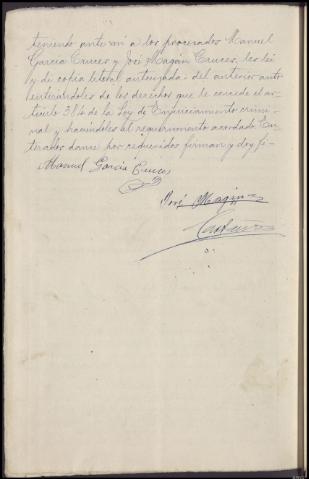 teniendo ante mi a los procesados Manuel
Garcia Cruces y José Magán Cruces, les lei
y di copia literal autorizada del anterior auto
enterandoles de los derechos que le concede el ar-
tículo 384 de la Ley de Enjuiciamiento crimi-
nal y haciendoles el requerimiento acordado En-
terados danse por reducidos firman y doy fé-
Manuel Garcia Cruces
José Magan